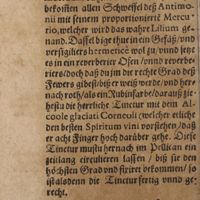 bekosten allen Schweffel deß Antimo-
nii mit seinem proportionierte Mercu-
rio, welcher wird das wahre Lilium ge-
nand. Dassel bige thut in ein Gefäß / vnd
versigilters hermeticè wol zu / vnnd setzt
es in ein reverberier Ofen / vnnd reverbe-
riers / doch daß du jm die rechte Grad deß
Fewers gibest / biß er weiß werde / vnd her-
nach roth / als ein Rubinfarbe / darauß zie-
hestu die herrliche Tinctur mit dem Al-
coole glaciati Corneoli (welcher etliche
den besten Spiritum vini verstehen / daß
er acht Finger hoch darüber gehe. Diese
Tinctur mustu hernach im Pellican ein
zeitlang circulieren lassen / biß sie den
höchsten Grad vnd fixiret bekommen / so
ist alsdenn die Tinctur fertig vnnd ge-
recht.